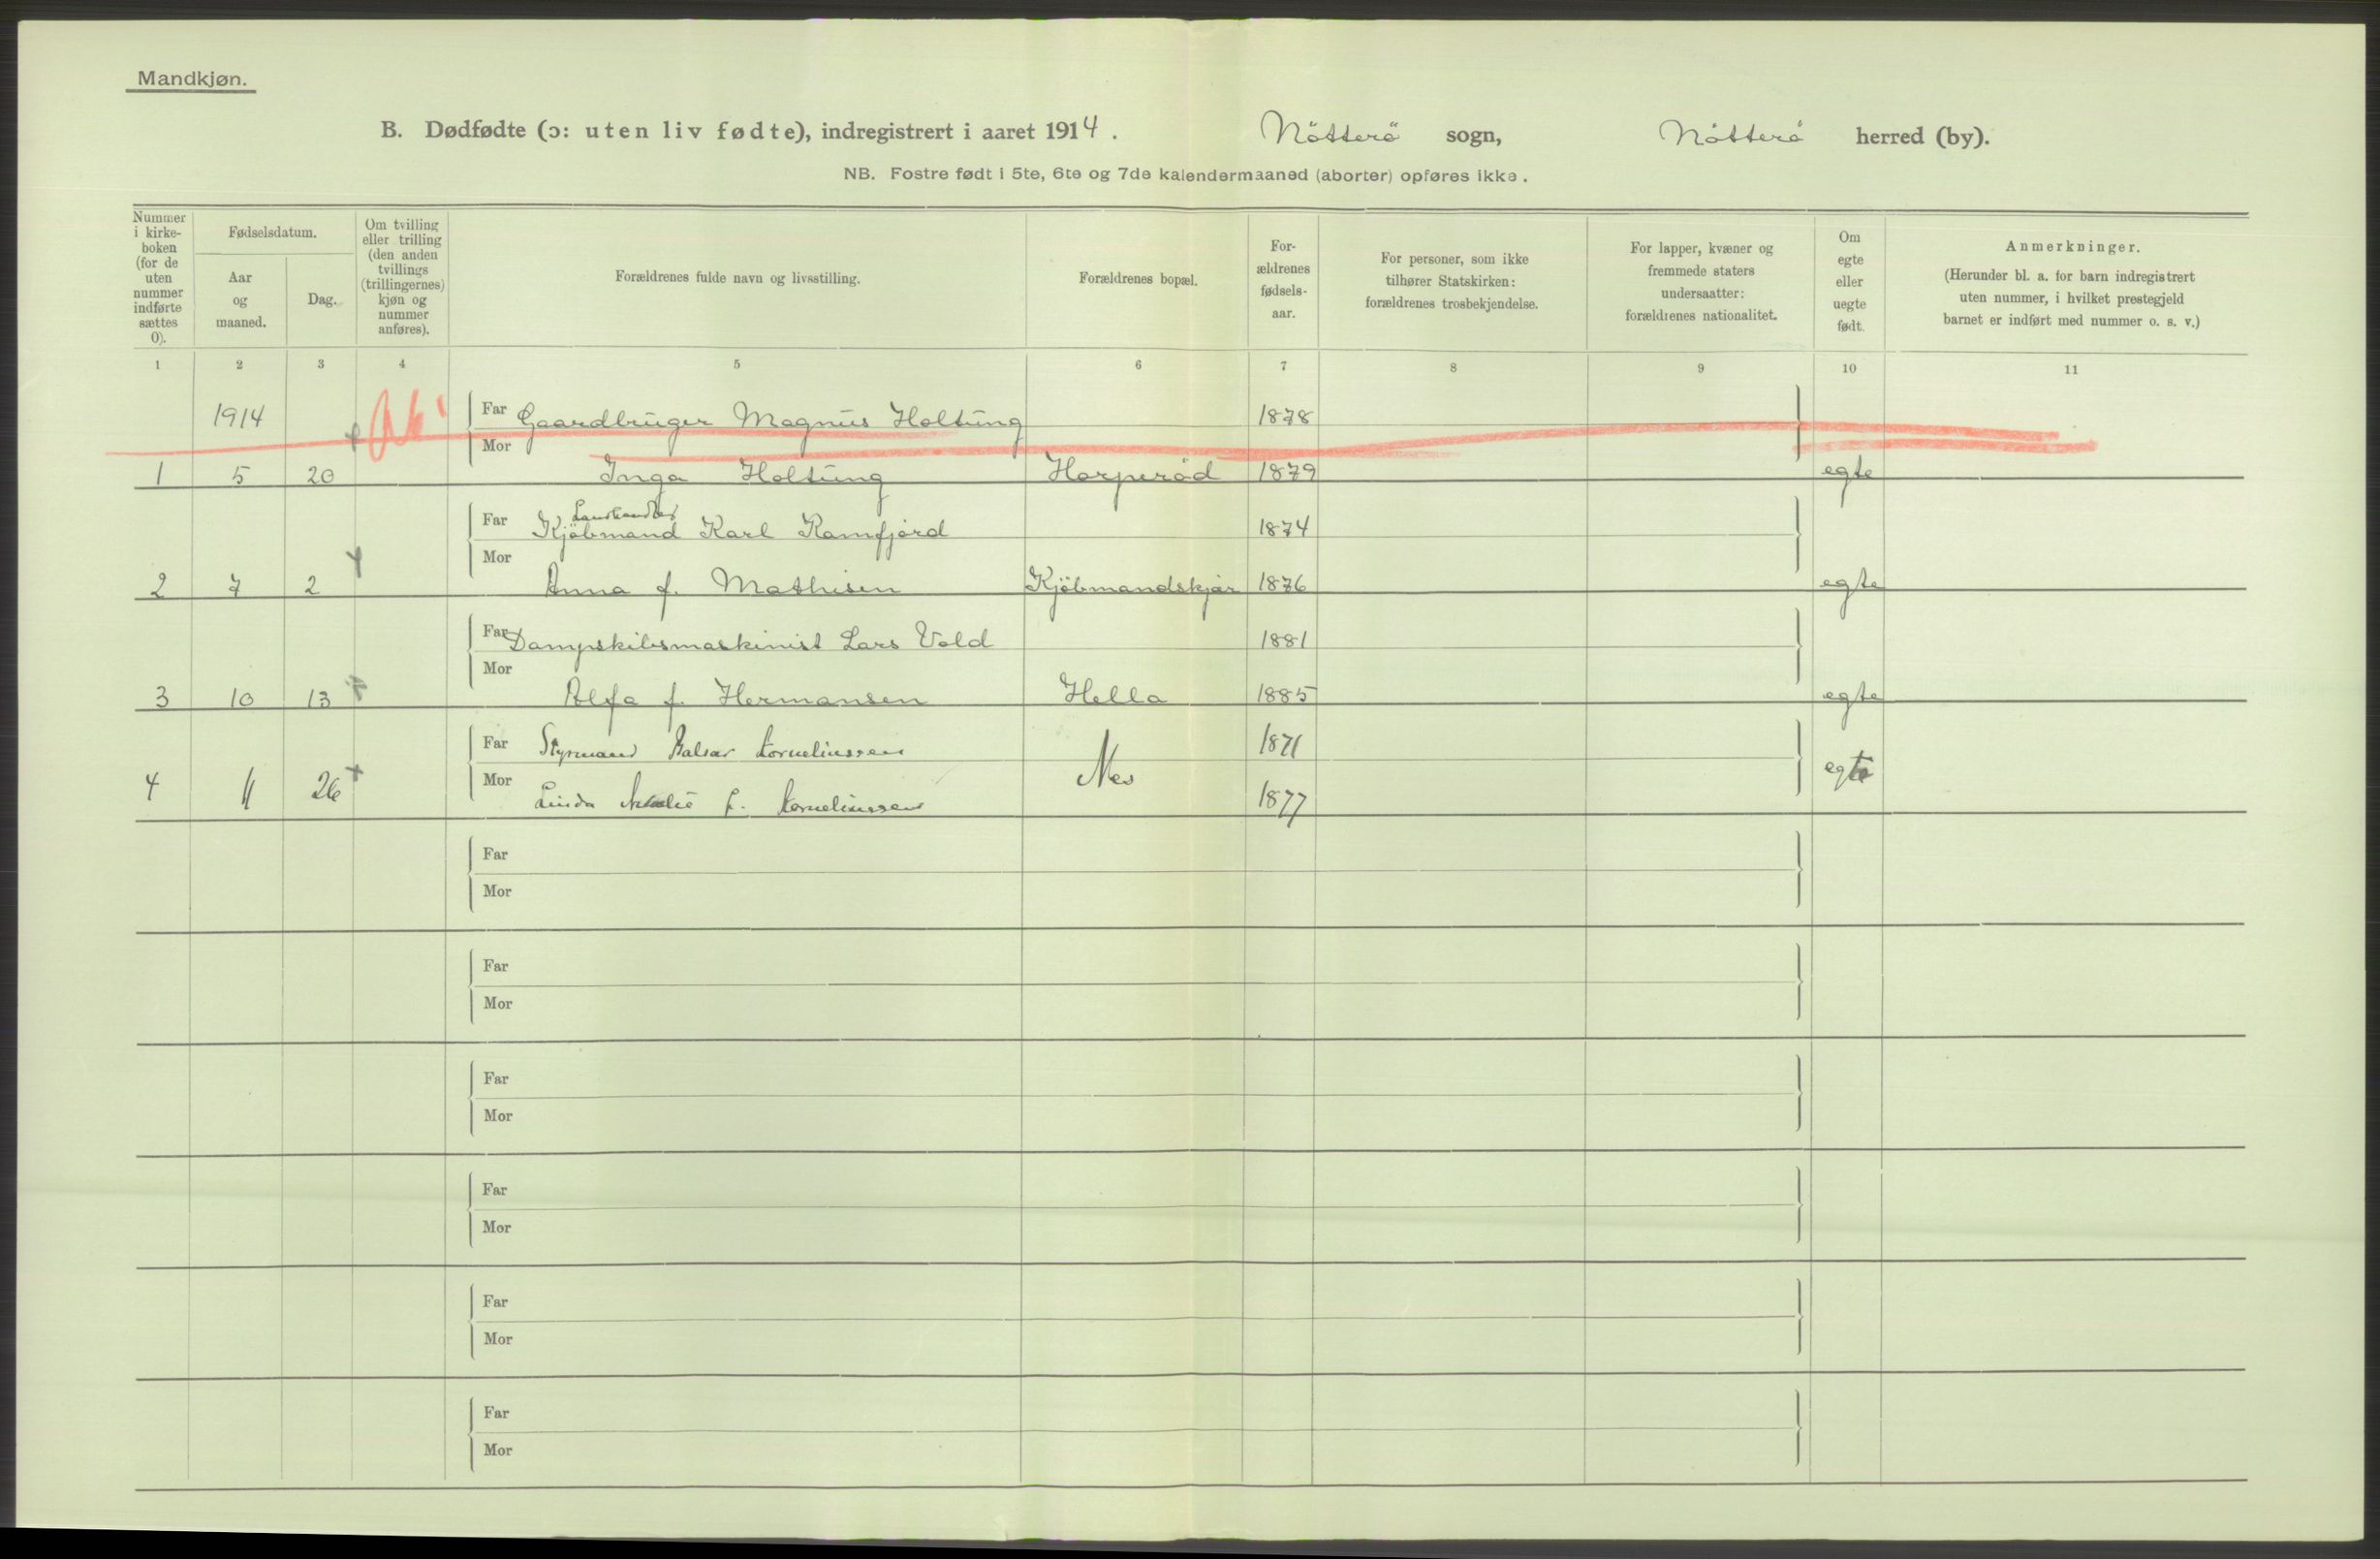 Mandkjøn.
B. Dødfødte (ɔ: uten liv fødte), indregistrert i aaret 1914. Nötterö sogn, Nötterö herred (by).
NB. Fostre født i 5te, 6te og 7de kalendermaaned (aborter) opføres ikke.
Nummer i kirke-boken (for de uten nummer indførte sættes 0).
Fødselsdatum.
Aar og maaned.
Dag.
Om tvilling eller trilling (den anden tvillings (trillingernes) kjøn og nummer anføres).
Forældrenes fulde navn og livsstilling.
Forældrenes bopæl.
For-ældrenes fødsels-aar.
For personer, som ikke tilhører Statskirken: forældrenes trosbekjendelse.
For lapper, kvæner og fremmede staters undersaatter: forældrenes nationalitet.
Om egte eller uegte født.
Anmerkninger.
(Herunder bl. a. for barn indregistrert uten nummer, i hvilket prestegjeld barnet er indført med nummer o. s. v.)
1 2 3 4 5 6 7 8 9 10 11
1914 Far Gaardbruger Magnus Holtung 1878
1 5 20 Mor Inga Holtung Horperöd 1879 egte
Landhandler
Far Kjöbmand Karl Ramfjord 1874
2 7 2 Mor Anna f. Mathisen Kjöbmandskjær 1876 egte
Far Dampskibsmaskinist Lars Vold 1881
3 10 13 Mor Alfa f. Hermansen Hella 1885 egte
Far Styrmand Balsar Korneliussen 1871
4 11 26 Mor Linda f. Korneliussen Nes 1877 egte
Far
Mor
Far
Mor
Far
Mor
Far
Mor
Far
Mor
Far
Mor